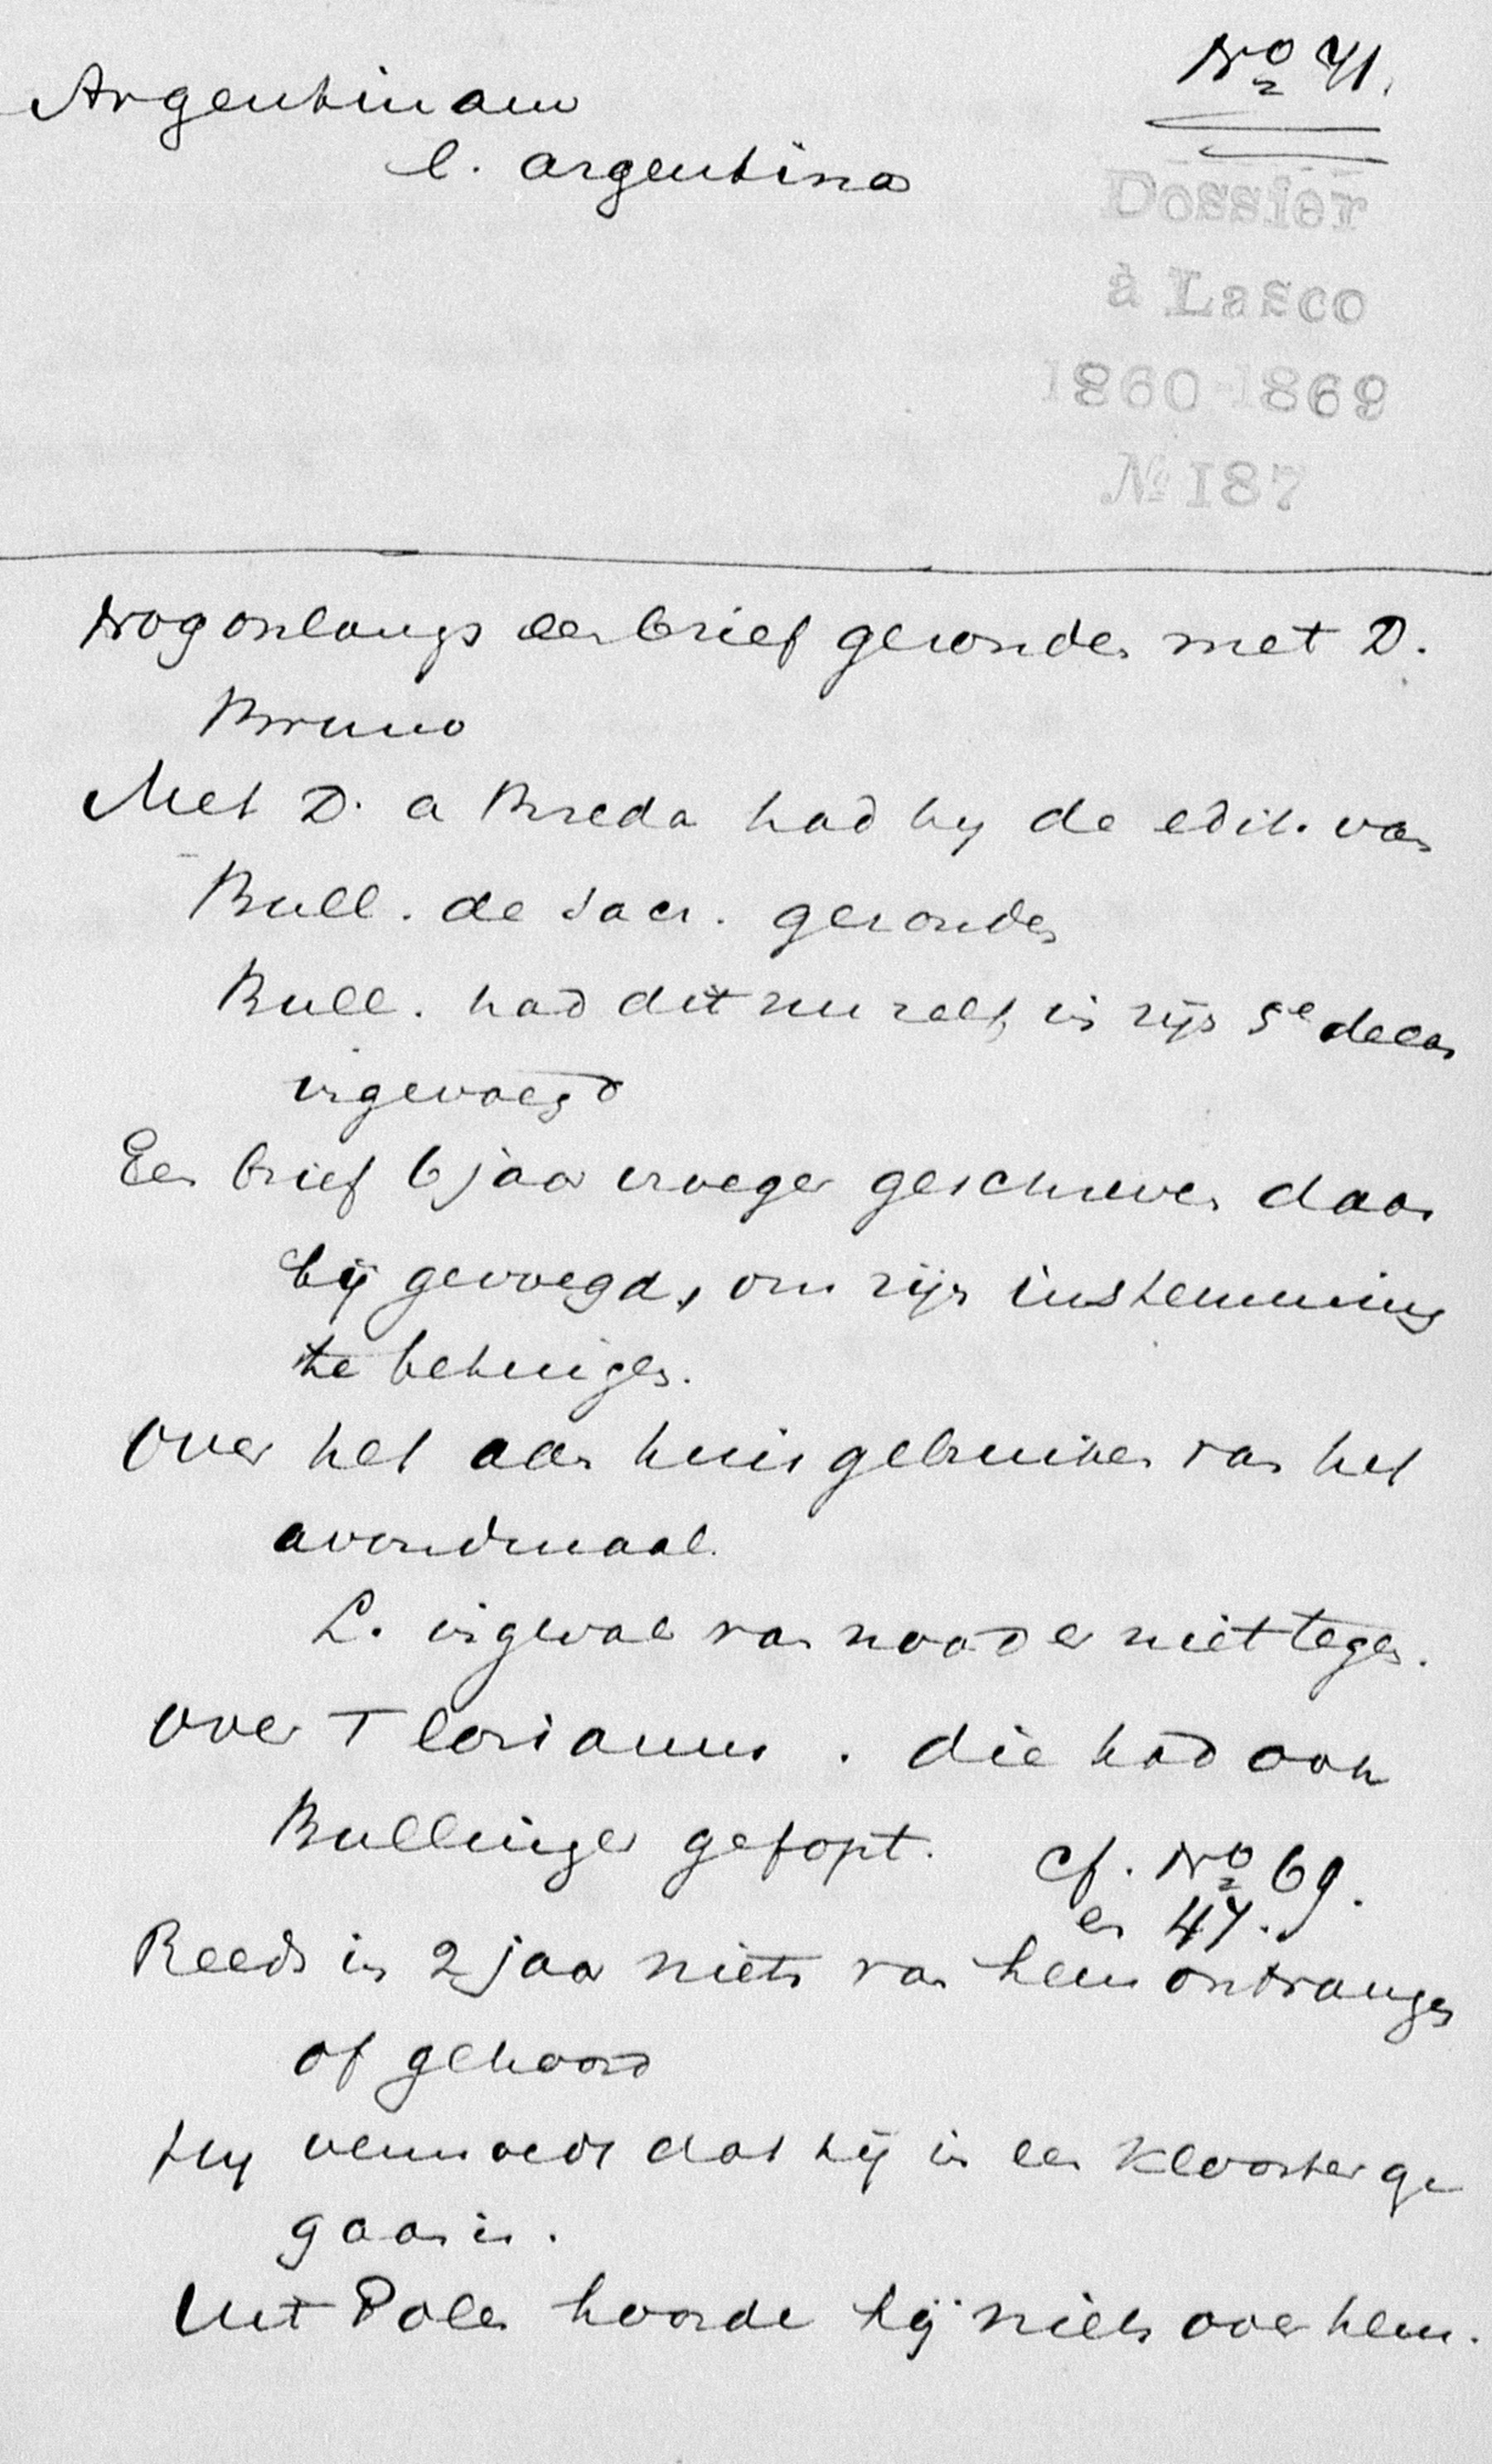 No 71.
Argentinam
l. argentina
Dossier
à Lasco
1860-1869
No 187
Nog onlangs een brief gezonden met D.
Bruno
Met D. a Breda had hy de edit. van
Bull. de sacr. gezonden
Bull. had dit nu zelf in zijn 5e decas
ingevoegd
Een brief 6 jaar vroeger geschreven daar
bij gevoegd, om zijn instemming
te betuigen.
Over het aan huis gebruiken van het
avondmaal.
L. in geval van nood er niet tegen.
Over Florianus. die had ook
Bullinger gefopt. cf. No 69.
en 47.
Reeds in 2 jaar niets van hem ontvangen
of gehoord
Hy vermoedt dat hij in een klooster ge
gaan is.
Uit Polen hoorde hij niets over hem.